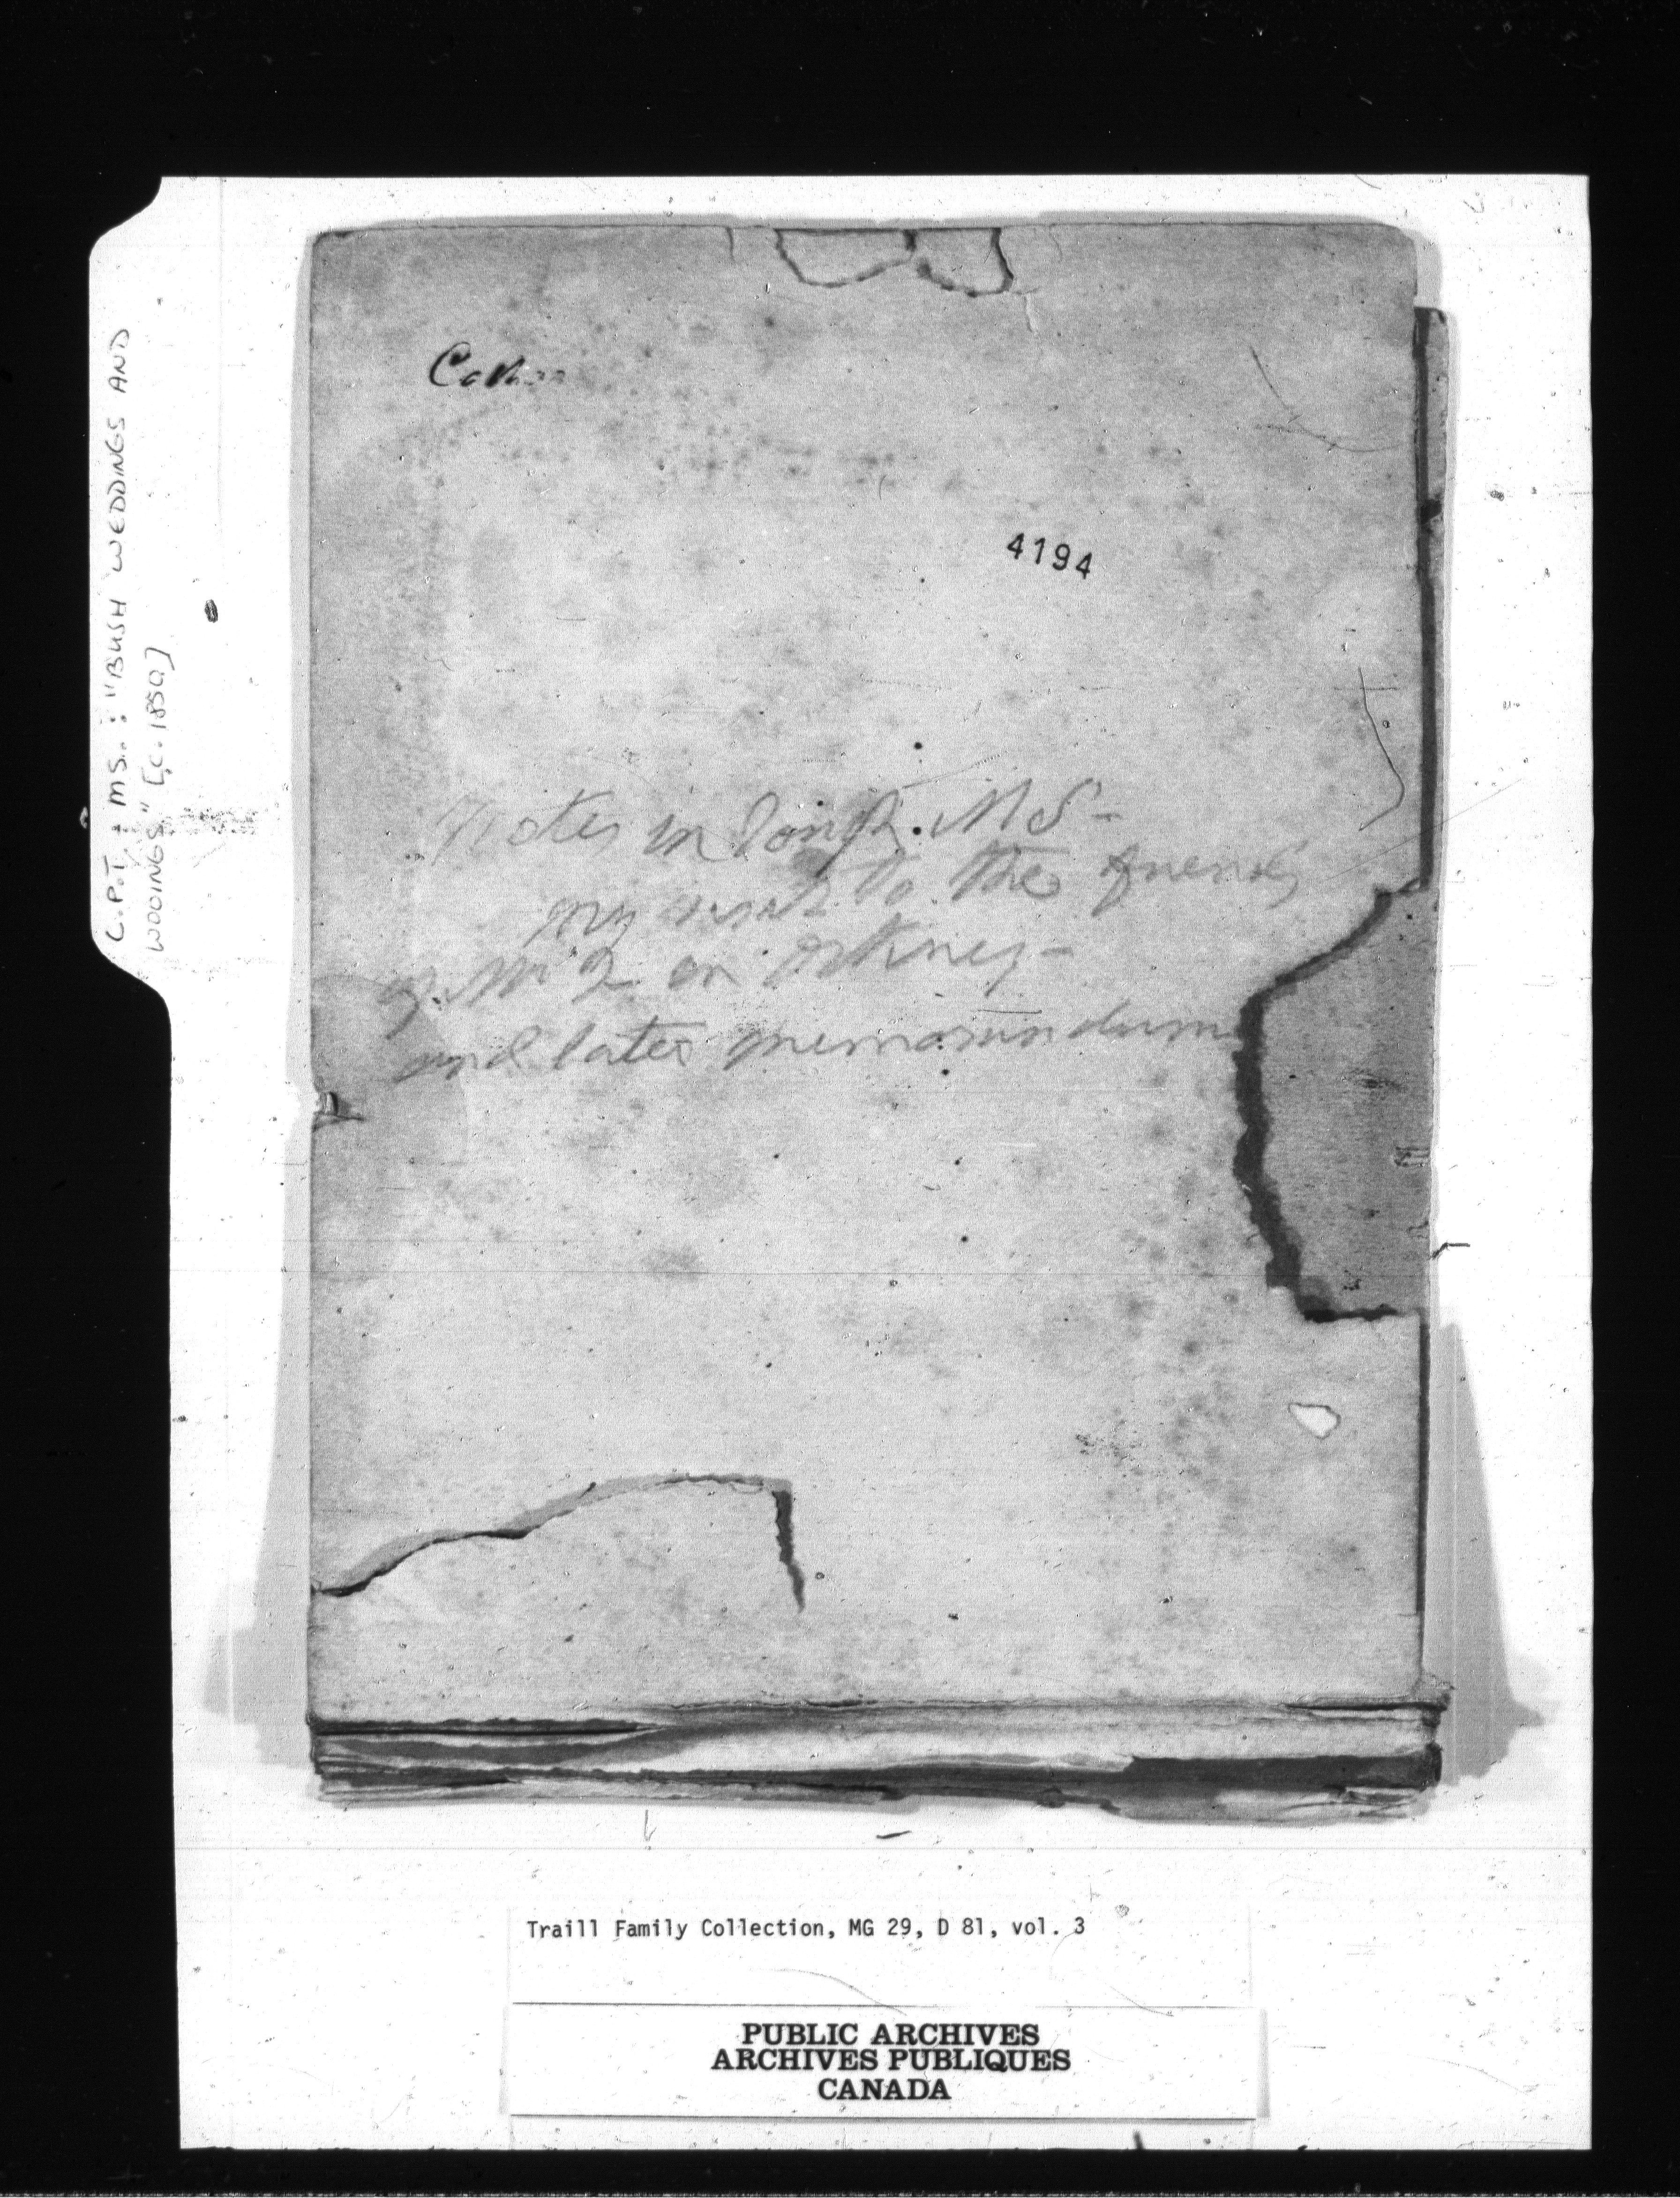 C.P.T. MS.: "BUSH WEDDINGS AND
WOODINGS" [C. 1850]
4194
Notes in MS-
my visit to the friends
of Mr in Orkney-
and later memorandum
Traill Family Collection, MG 29, D 81, vol. 3
PUBLIC ARCHIVES
ARCHIVES PUBLIQUES
CANADA